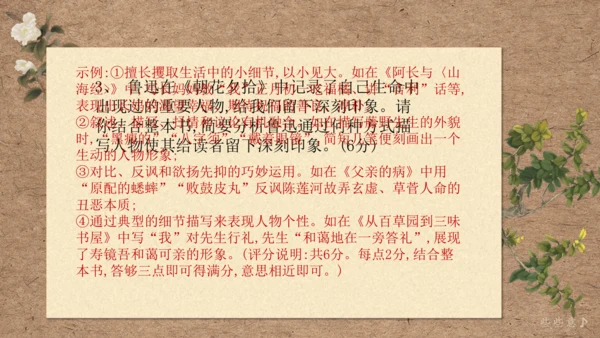 示例:①擅长攫取生活中的小细节,以小见大。如在《阿长与〈山
3、 鲁迅在《朝花夕拾》中记录了自己生命中
出现过的重要人物,给我们留下深刻印象。请
你结合整本书,简要分析鲁迅通过何种方式描
写人物使其给读者留下深刻印象。(6分)
生动的人物形象;
③对比、反讽和欲扬先抑的巧妙运用。如在《父亲的病》中用
“原配的蟋蟀”“败鼓皮丸”反讽陈莲河故弄玄虚、草菅人命的
丑恶本质;
④通过典型的细节描写来表现人物个性。如在《从百草园到三味
书屋》中写“我”对先生行礼,先生“和蔼地在一旁答礼”,展现
了寿镜吾和蔼可亲的形象。(评分说明:共6分。每点2分,结合整
本书,答够三点即可得满分,意思相近即可。)